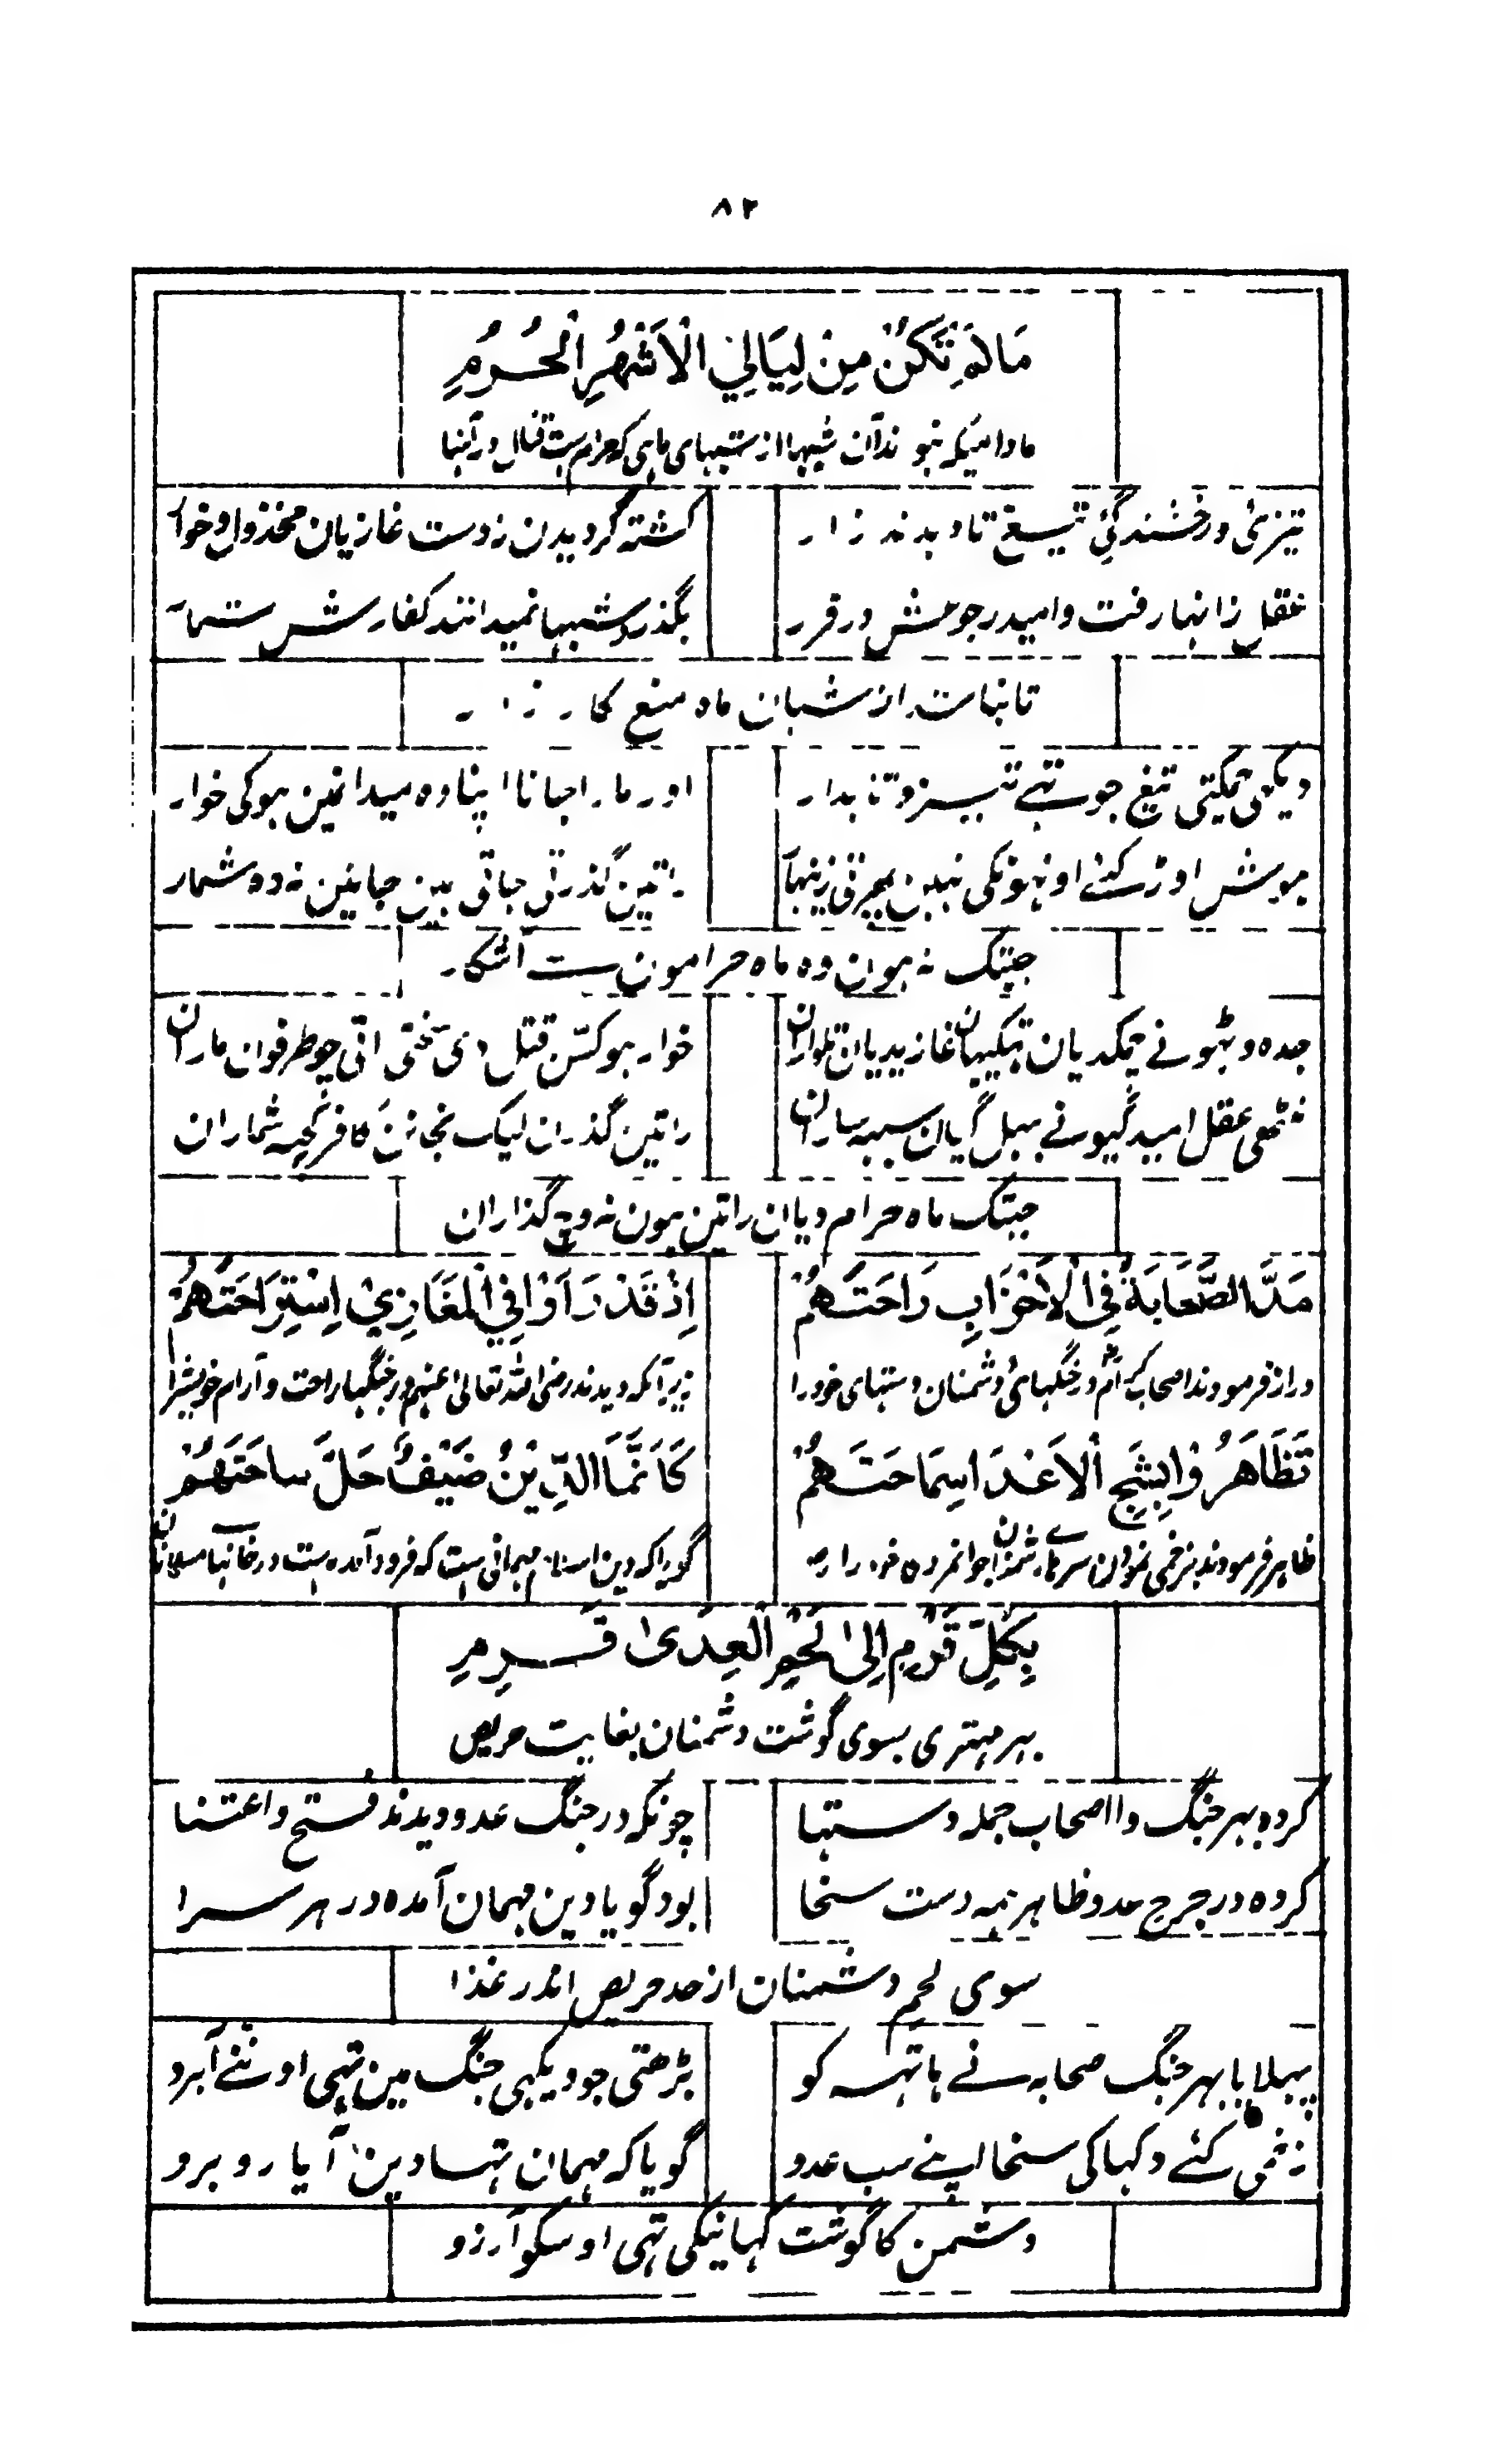 ۸۲
مَالَمْ تَكُنْ مِنْ لِيَالِي الْاَشْهُرِ الْحُرُمِ
مادامیکه نبوند آن شبها از شبهای ماهی که حرام ست قتال در آنها
تیزئ درخشندگئ تیغ تا دیدند زار
کشته گردیدن ز دست غازیان مخذول و خوار
عقل زانها رفت و امید رجوعش در قرر
بگذرد شبها نمیدانند کفارش شمار
تا نباشد از شبان ماه منع کارزار
دیکهی چمکتی تیغ جو تهے تیز و تابدار
اور مارا جانا اپنا وه میدانمین هوکی خوار
هوش اوڑ گئے اونهونکی نهین پهرتی زینهار
راتین گذرتی جاتی هین جانین نه دو شمار
جبتک نه هون وه ماه حرامون ست آشکار
جده وٹهونے چمکدیان تکهیان غازیدیان تلواران
خوار هوکسّن قتل دی سختی اتّی چو طرفون ماران
نٹهی عقل امید گیونے بهل گیان سبهه ساران
راتین گذرن لیک نجانن کافر کجهه شماران
جبتک ماه حرام دیان راتین هون نه وچ گذاران
مَدَّ الصَّحَابَةُ فِي الْاَحْزَابِ رَاحَتَهُمْ
اِذْ قَدْ رَاَوْا فِي الْمَغَازِيْ اِسْتِرَاحَتَهُمْ
دراز فرمودند اصحاب کرام در جنگهائ دشمنان دستهای خود را
زیرآنکه دیدند رضی الله تعالی عنهم در جنگها راحت و آرام خویش را
تَظَاهَرُوْا بِشَجِّ الْاَعْدَا سِمَاحَتَهُمْ
كَاَنَّمَا الدِّيْنُ ضَيْفٌ حَلَّ سَاحَتَهُمْ
ظاهر فرمودند بزخمی نمودن سرهای دشمنان جوانمردی خود را
گویا که دین اسلام مهمانی ست که فرود آمده ست در خانهای مسلمانان
بِكُلِّ قَوْمٍ اِلىٰ لَحْمِ الْعِدىٰ قَرِمِ
بهر مهتری بسوی گوشت دشمنان بغایت حریص
کرده بهر جنگ وا اصحاب جمله دستها
چونکه در جنگ عدو دیدند فتح و اعتنا
کرده در جرح عدو ظاهر همه دست سخا
بود گویا دین مهمان آمده در هر سرا
سوی لحم دشمنان از حد حریص اندر غذا
پهلایا بهر جنگ صحابه نے هاتهه کو
بڑهتی جو دیکهی جنگ مین تهی اونے آبرو
زخمی کئے دکها کی سخا اپنے سب عدو
گویا که مهمان تها دین آیا روبرو
دشمن کا گوشت کهانیکی تهی اوسکو آرزو